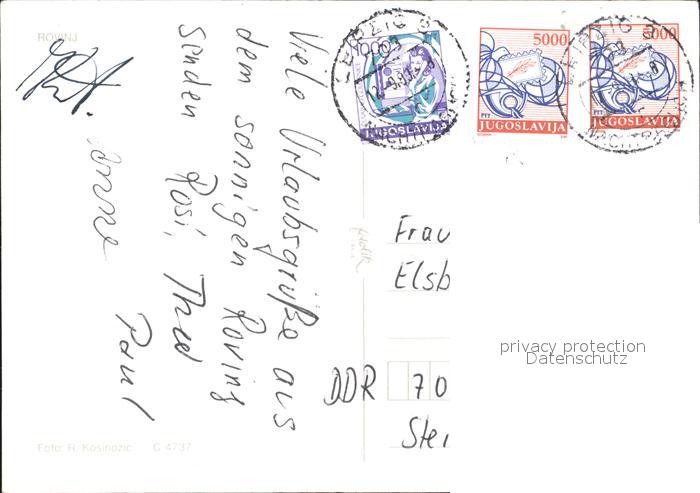 ROVINJ
Viele Urlaubsgrüße aus
dem sonnigen Rovinj
senden Rosi,
Anne Paul
Foto: R. Kosinozic C 4737
10000
JUGOSLAVIJA
5000
PTT
JUGOSLAVIJA
5000
PTT
JUGOSLAVIJA
LEIPZIG
LEIPZIG
Frau
Elsb
DDR 70
Stei
privacy protection
Datenschutz